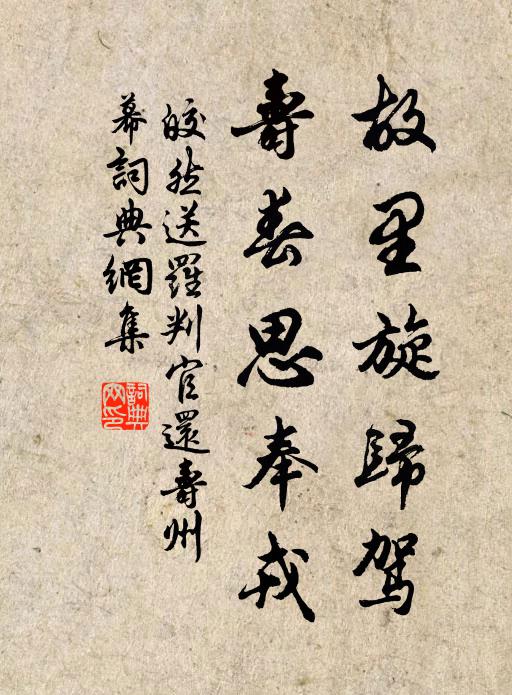 故里旋歸駕
壽春思奉戎
皎然送羅判官還壽州
幕詞典網集
詞典網印